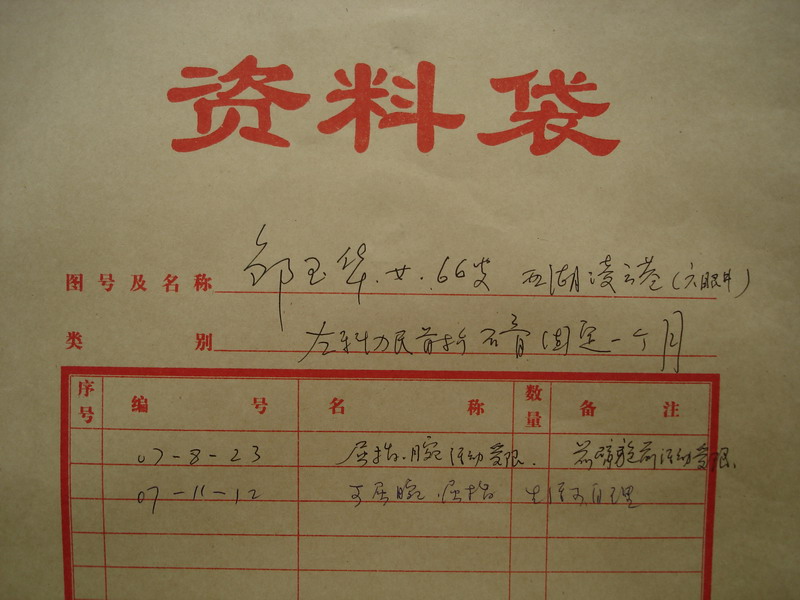 资料袋
图号及名称 邹玉华.女.66岁 西湖凌云巷(六眼井)
类别 左科力氏骨折石膏固定一个月
序号 编号 名称 数量 备注
07-8-23 屈指.腕活动受限. 前臂旋前活动受限.
07-11-12 可屈腕.屈指 生活可自理